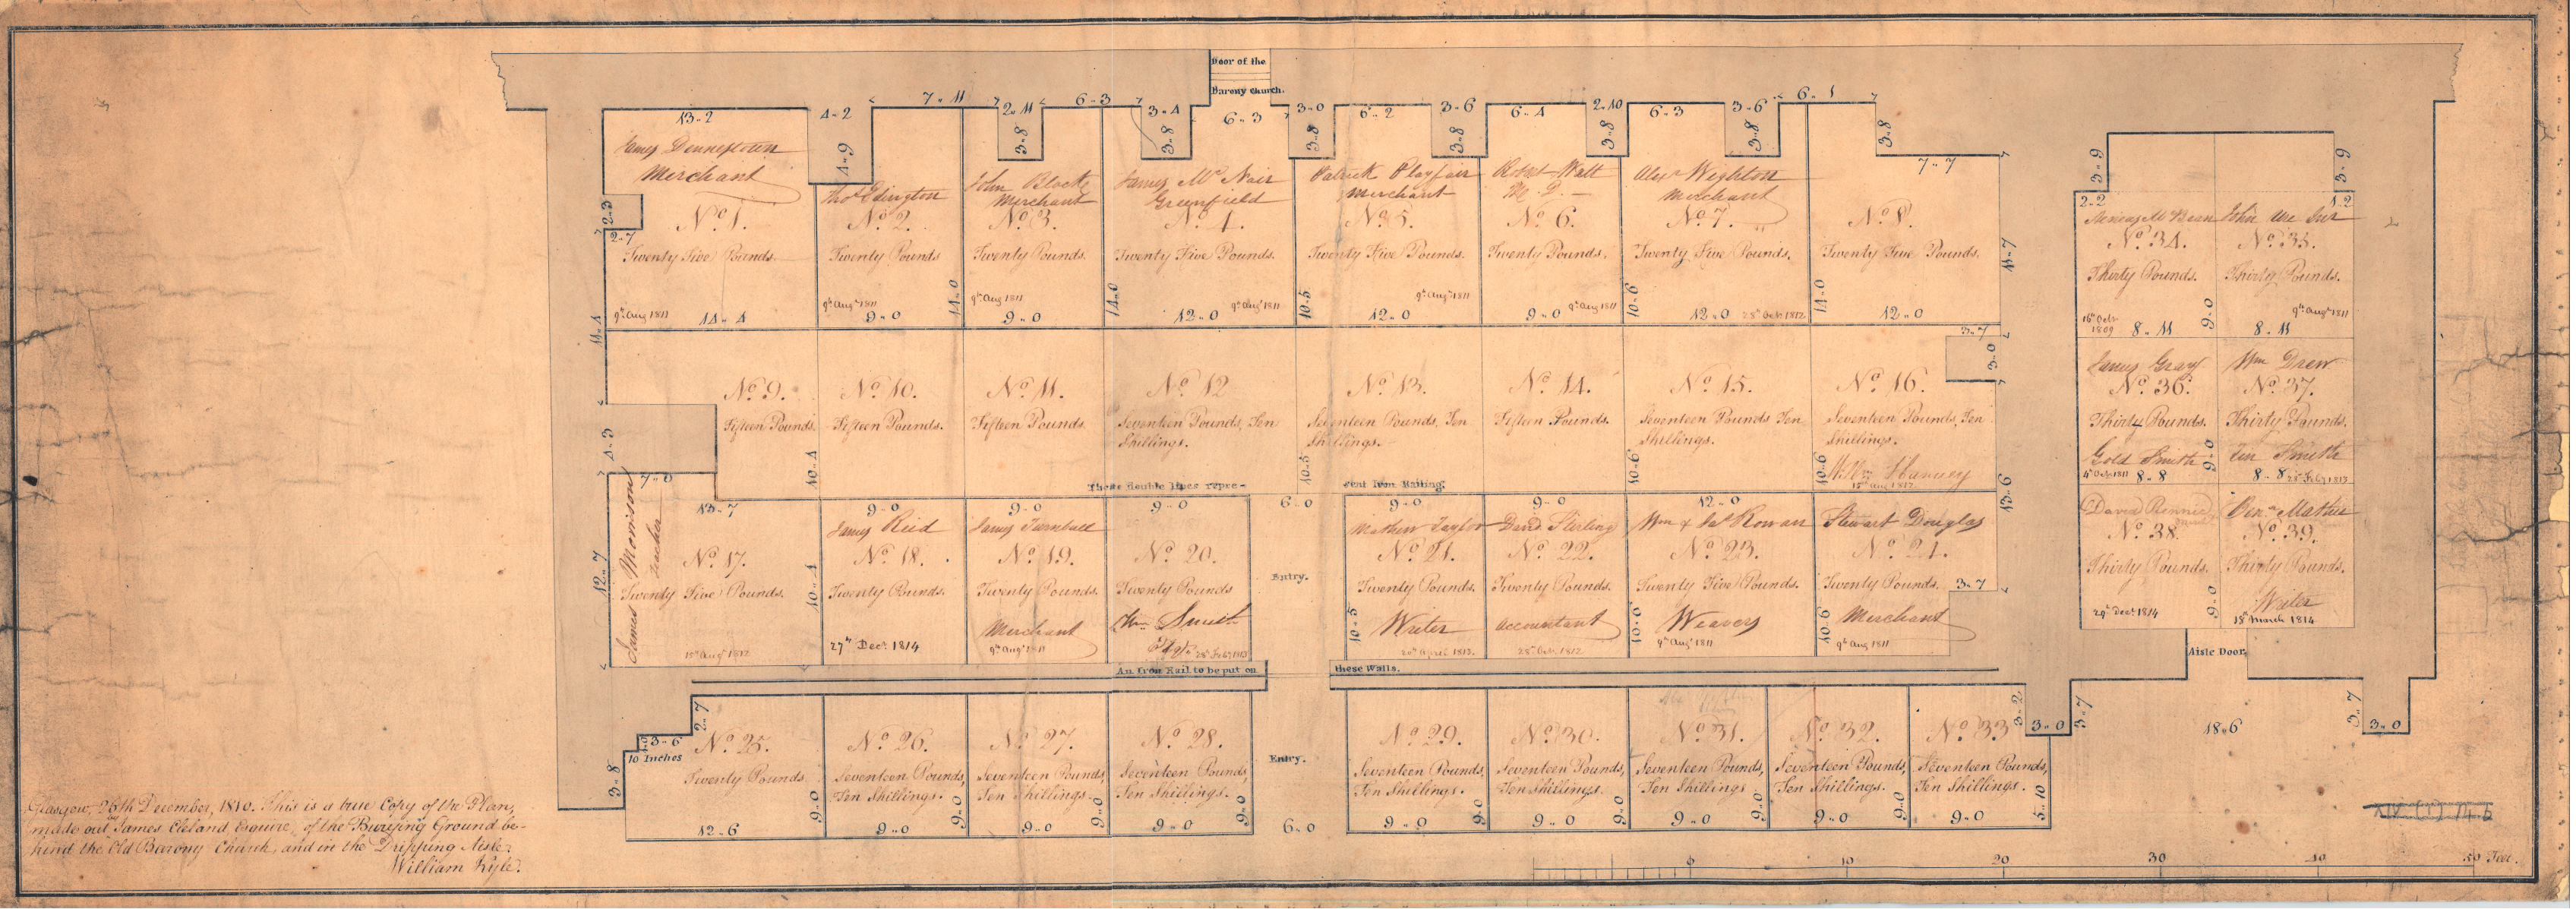 Door of the
Barony church.
13 〃 2
4 〃 2
7 〃 11
2 〃 11
6 〃 3
3 〃 4
6 〃 3
3 〃 0
6 〃 2
3 〃 6
6 〃 4
2 〃 10
6 〃 3
3 〃 6
6 〃 1
3 〃 8
7 〃 7
4 〃 9
3 〃 8
3 〃 8
3 〃 8
3 〃 8
3 〃 8
3 〃 8
James Dennistoun
Merchant
No. 1.
Twenty Five Pounds.
9th Augt 1811
14 〃 4
2 〃 3
2 〃 7
11 〃 4
Thos Edington
No. 2.
Twenty Pounds
9th Augt 1811
9 〃 0
14 〃 0
John Black
Merchant
No. 3.
Twenty Pounds.
9th Aug 1811
9 〃 0
14 〃 0
James Mc Nair
Greenfield
No. 4.
Twenty Five Pounds.
9th Augt 1811
12 〃 0
10 〃 5
Patrick Playfair
Merchant
No. 5.
Twenty Five Pounds.
9th Augt 1811
12 〃 0
Robt Watt
M. D.
No. 6.
Twenty Pounds.
9th Aug 1811
9 〃 0
10 〃 6
Alexr Wighton
Merchant
No. 7.
Twenty Five Pounds.
28th Octr 1812
12 〃 0
14 〃 0
No. 8.
Twenty Five Pounds.
12 〃 0
11 〃 7
No. 9.
Fifteen Pounds.
4 〃 3
7 〃 0
10 〃 4
No. 10.
Fifteen Pounds.
No. 11.
Fifteen Pounds.
No. 12
Seventeen Pounds, Ten
Shillings.
10 〃 5
No. 13.
Seventeen Pounds, Ten
Shillings.
No. 14.
Fifteen Pounds.
10 〃 6
No. 15.
Seventeen Pounds Ten
Shillings.
10 〃 6
No. 16.
Seventeen Pounds, Ten
Shillings.
15th Aug 1812
3 〃 7
3 〃 0
13 〃 6
These double lines repre-
sent Iron Railing.
James Morrison
Teacher
13 〃 7
No. 17.
Twenty Five Pounds.
15th Augt 1812
12 〃 7
10 〃 4
9 〃 0
James Reid
No. 18.
Twenty Pounds.
27th Decr 1814
9 〃 0
James Turnbull
No. 19.
Twenty Pounds.
Merchant
9th Augt 1811
9 〃 0
No. 20.
Twenty Pounds
Wm Smith
28th Feby 1813
6 〃 0
Entry.
9 〃 0
Mathew Taylor
No. 21.
Twenty Pounds.
Writer
20th April 1813.
10 〃 5
9 〃 0
David Stirling
No. 22.
Twenty Pounds.
Accountant
28th Octr 1812
12 〃 0
Wm & Jas Rowan
No. 23.
Twenty Five Pounds.
Weavers
9th Augt 1811
10 〃 6
Stewart Douglas
No. 24.
Twenty Pounds.
Merchant
9th Aug 1811
10 〃 6
3 〃 7
An Iron Rail to be put on
these Walls.
2 〃 7
3 〃 6
10 Inches
3 〃 8
No. 25.
Twenty Pounds.
12 〃 6
9 〃 0
No. 26.
Seventeen Pounds,
Ten Shillings.
9 〃 0
9 〃 0
No. 27.
Seventeen Pounds,
Ten Shillings.
9 〃 0
9 〃 0
No. 28.
Seventeen Pounds,
Ten Shillings.
9 〃 0
9 〃 0
Entry.
6 〃 0
No. 29.
Seventeen Pounds,
Ten Shillings.
9 〃 0
9 〃 0
No. 30.
Seventeen Pounds,
Ten Shillings.
9 〃 0
No. 31.
Seventeen Pounds,
Ten Shillings
9 〃 0
9 〃 0
No. 32.
Seventeen Pounds,
Ten Shillings.
9 〃 0
9 〃 0
No. 33
Seventeen Pounds,
Ten Shillings.
9 〃 0
5 〃 10
3 〃 2
3 〃 0
3 〃 7
3 〃 9
3 〃 9
2 〃 2
1 〃 2
No. 34.
Thirty Pounds.
16th Octr
1809
8 〃 11
9 〃 0
No. 35.
Thirty Pounds.
9th Augt 1811
8 〃 11
James Gray
No. 36.
Thirty Pounds.
Gold Smith
4th Octr 1811
8 〃 8
9 〃 0
Wm Drew
No. 37.
Thirty Pounds.
Tin Smith
8 〃 8
28th Feby 1813
David Rennie
No. 38.
Thirty Pounds.
29th Decr 1814
9 〃 0
Mather
No. 39.
Thirty Pounds.
Writer
18th March 1814
Aisle Door.
18 〃 6
3 〃 7
3 〃 0
Glasgow, 26th December, 1810. This is a true Copy of the Plan,
made out by James Cleland Esquire, of the Burying Ground be-
hind the Old Barony Church, and in the Dripping Aisle.
William Kyle.
0
10
20
30
40
50 Feet.